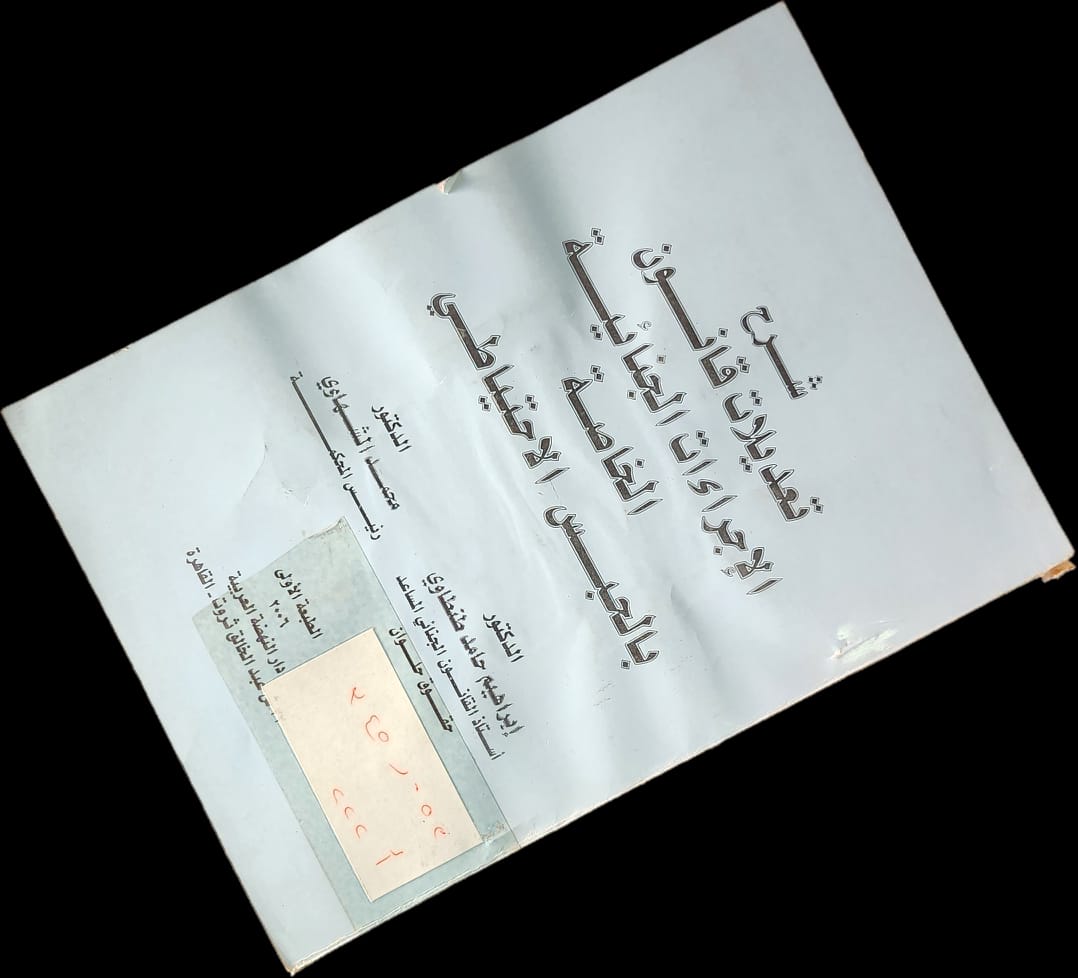 شرح
تعديلات قانون
الإجراءات الجنائية
الخاصة
بالحبس الاحتياطي
الدكتور
إبراهيم حامد طنطاوي
أستاذ القانون الجنائي المساعد
حقوق حلوان
الدكتور
محمد الشهاوي
رئيس المحكمة
الطبعة الأولى
٢٠٠٦
دار النهضة العربية
عبد الخالق ثروت - القاهرة